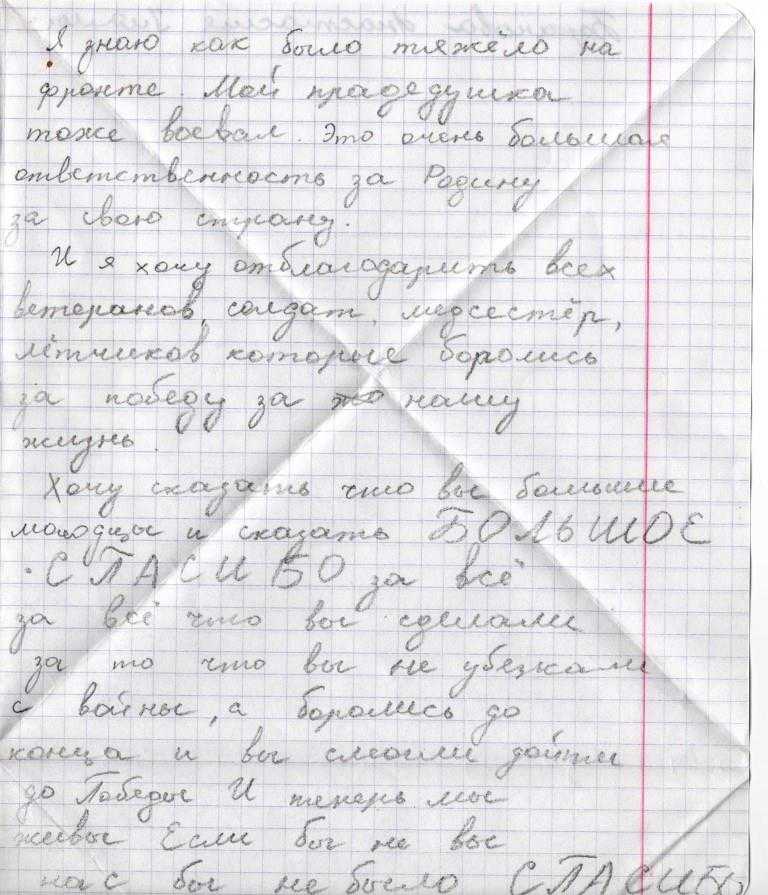 Я знаю как было тяжёло на
фронте. Мой прадедушка
тоже воевал. Это очень большая
ответственность за Родину
за свою страну.
И я хочу отблагодарить всех
ветеранов, солдат, медсестёр,
лётчиков которые боролись
за победу за нашу
жизнь.
Хочу сказать что вы большие
молодцы и сказать БОЛЬШОЕ
СПАСИБО за всё
за всё что вы сделали
за то что вы не убежали
с войны, а боролись до
конца и вы смогли дойти
до Победы И теперь мы
живы Если бы не вы
нас бы не было СПАСИБО